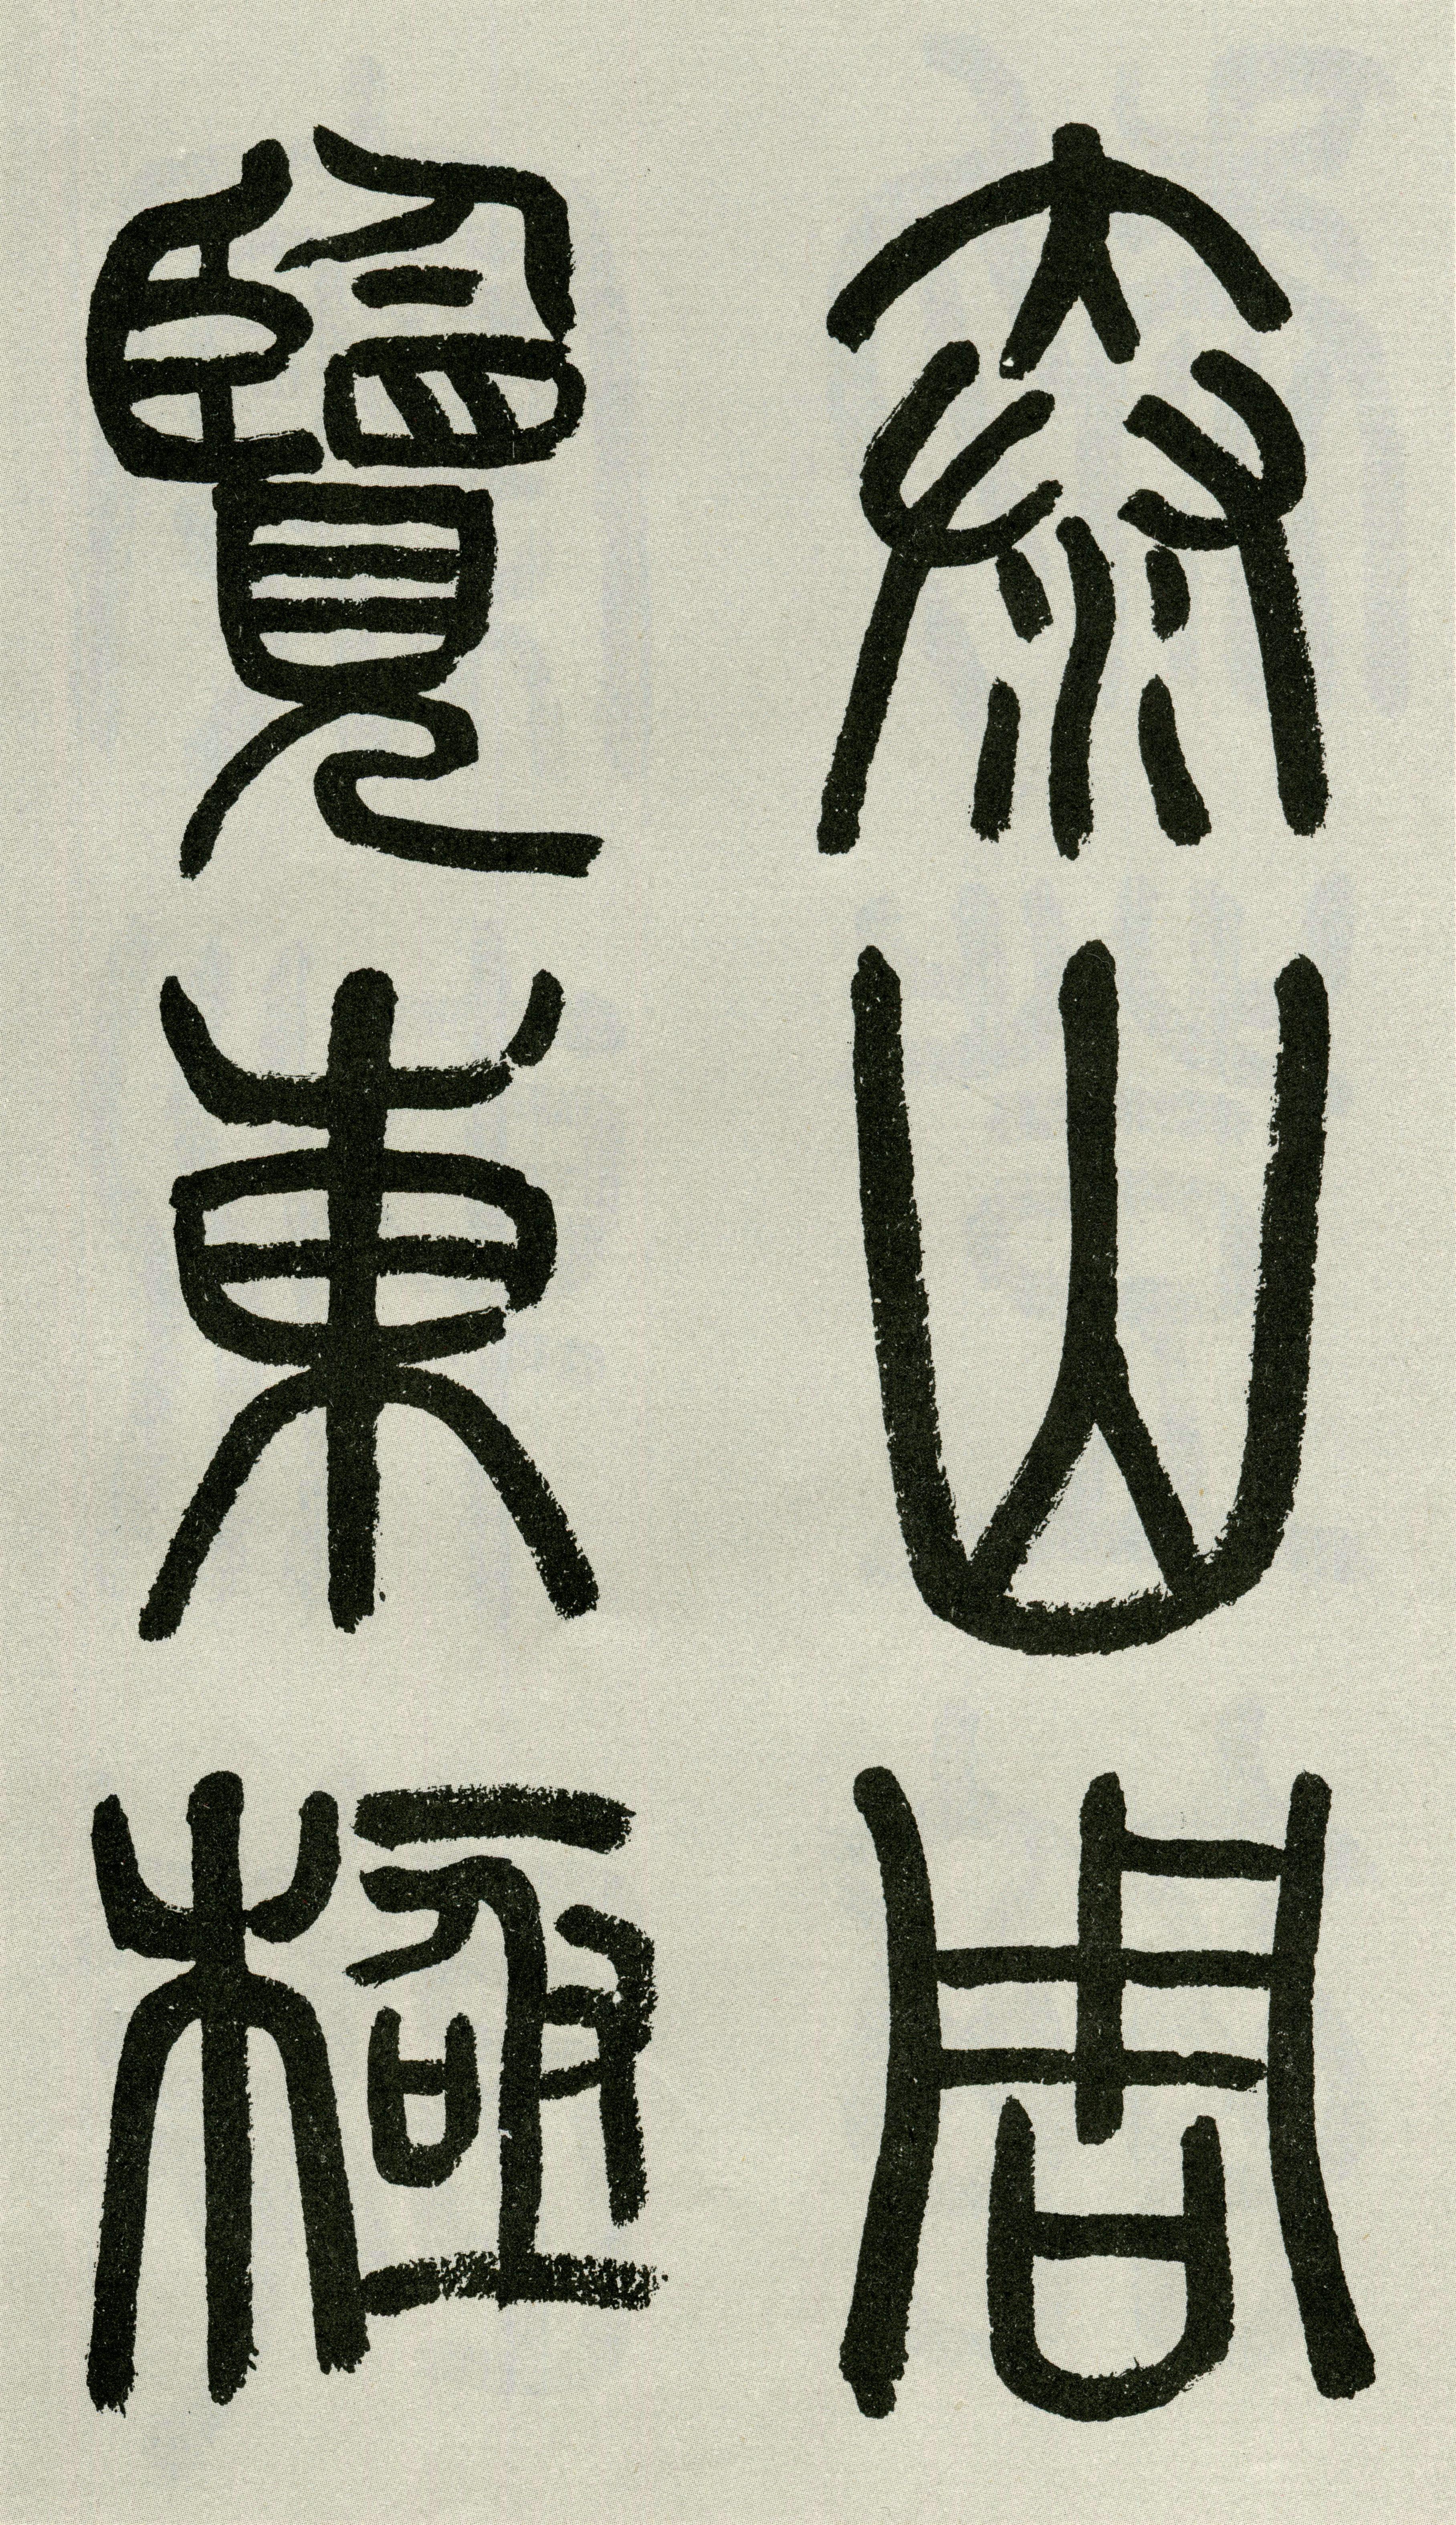 泰山周
覽東極